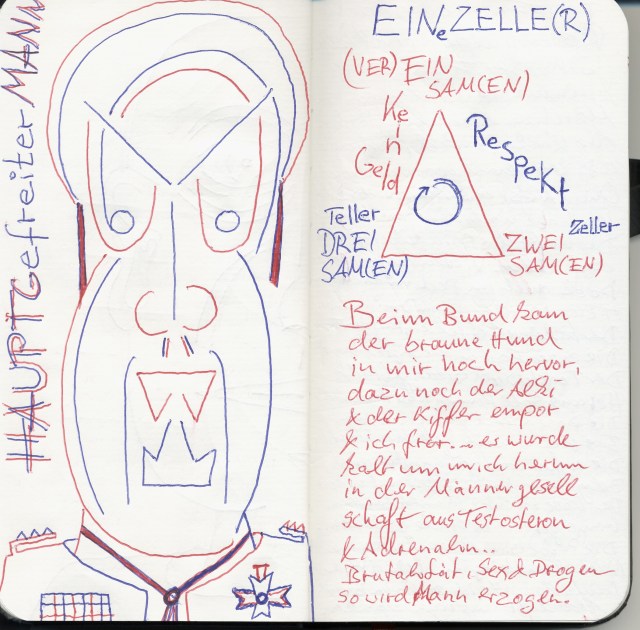 HAUPTGefreiter MANN
EINeZELLE(R)
(VER) EIN
SAM(EN)
Kein
Geld
Respekt
Teller
DREI
SAM(EN)
Zeller
ZWEI
SAM(EN)
Beim Bund kam
der braune Hund
in mir hoch hervor,
dazu noch der Alki
& der Kiffer empor
& ich fror.... es wurde
kalt um mich herum
in der Männergesell
schaft aus Testosteron
& Adrenalin..
Brutalität, Sex & Drogen
so wird Mann erzogen.